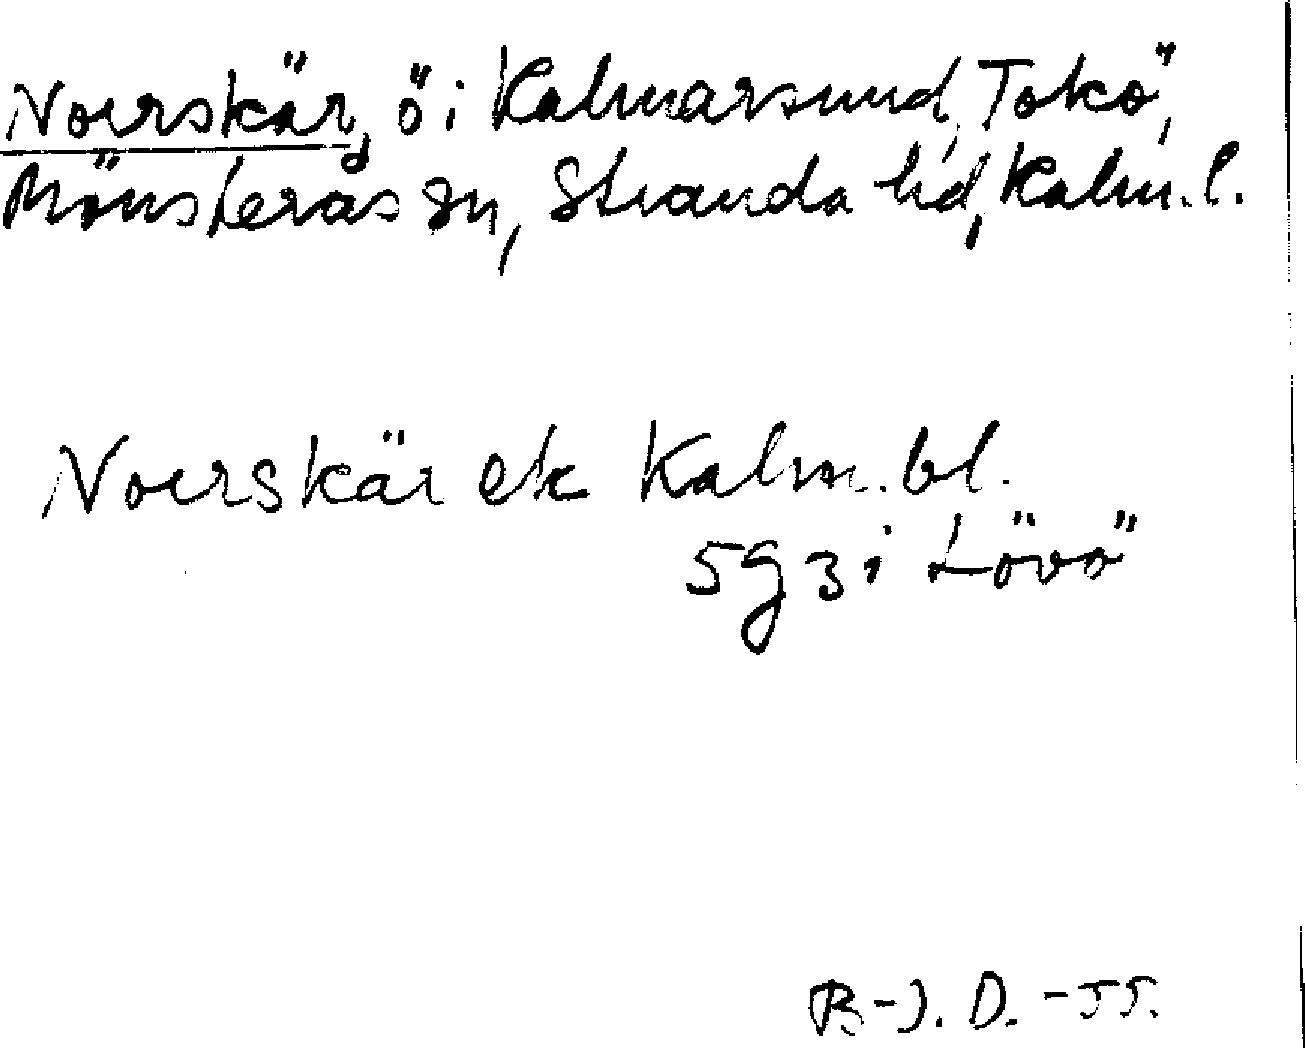 Noerskär, ö i Kalmarsund, Tokö,
Mönsterås sn, Stranda hd, Kalm. l.
Noerskär ek Kalm. bl.
5 g 3 i Lövö
B-J. D. -55.